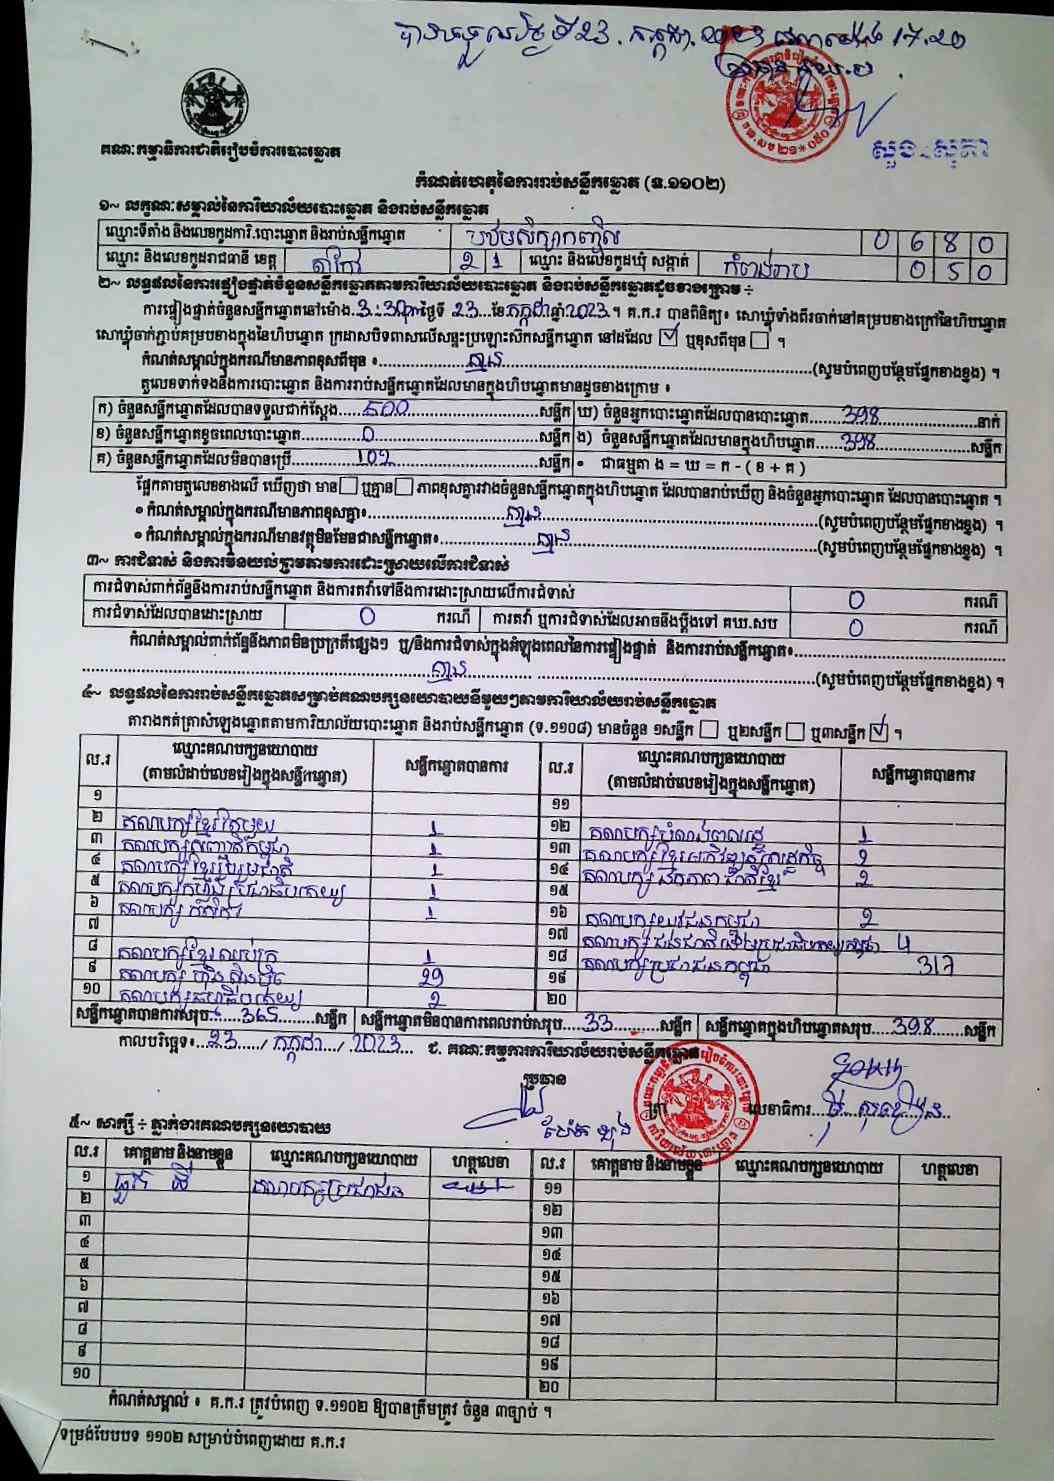 បានទទួលថ្ងៃទី23.កក្កដា.2023 វេលាម៉ោង 17.20
គណៈកម្មាធិការជាតិរៀបចំការបោះឆ្នោត
កំណត់ហេតុនៃការរាប់សន្លឹកឆ្នោត (ទ.១១០២)
១~ លក្ខណៈសម្គាល់នៃការិយាល័យបោះឆ្នោត និងរាប់សន្លឹកឆ្នោត
ឈ្មោះទីតាំង និងលេខកូដការិ.បោះឆ្នោត និងរាប់សន្លឹកឆ្នោត 0 6 8 0
ឈ្មោះ និងលេខកូដរាជធានី ខេត្ត តាកែវ 2 1 ឈ្មោះ និងលេខកូដឃុំ សង្កាត់ កំពង់រាប 0 5 0
២~ លទ្ធផលនៃការផ្ទៀងផ្ទាត់ចំនួនសន្លឹកឆ្នោតតាមការិយាល័យបោះឆ្នោត និងរាប់សន្លឹកឆ្នោតដូចខាងក្រោម ÷
ការផ្ទៀងផ្ទាត់ចំនួនសន្លឹកឆ្នោតនៅម៉ោង.3:30.ថ្ងៃទី 23 ...ខែ កក្កដា ឆ្នាំ 2023 ។ គ.ក.រ បានពិនិត្យ៖ សោឃ្លុំទាំងពីរចាក់នៅគម្របខាងក្រៅនៃហិបឆ្នោត
សោឃ្លុំចាក់ភ្ជាប់គម្របខាងក្នុងនៃហិបឆ្នោត ក្រដាសបិទពាសលើសន្ទះប្រឡោះស៊កសន្លឹកឆ្នោត នៅដដែល ☑ ឬខុសពីមុន ☐ ។
កំណត់សម្គាល់ក្នុងករណីមានភាពខុសពីមុន ៖ គ្មាន (សូមបំពេញបន្ថែមផ្នែកខាងខ្នង) ។
តួលេខទាក់ទងនឹងការបោះឆ្នោត និងការរាប់សន្លឹកឆ្នោតដែលមានក្នុងហិបឆ្នោតមានដូចខាងក្រោម ៖
ក) ចំនួនសន្លឹកឆ្នោតដែលបានទទួលជាក់ស្តែង 500 សន្លឹក ឃ) ចំនួនអ្នកបោះឆ្នោតដែលបានបោះឆ្នោត 398 នាក់
ខ) ចំនួនសន្លឹកឆ្នោតខូចពេលបោះឆ្នោត 0 សន្លឹក ង) ចំនួនសន្លឹកឆ្នោតដែលមានក្នុងហិបឆ្នោត 398 សន្លឹក
គ) ចំនួនសន្លឹកឆ្នោតដែលមិនបានប្រើ 102 សន្លឹក • ជាធម្មតា ង = ឃ = ក - ( ខ + គ )
ផ្អែកតាមតួលេខខាងលើ ឃើញថា មាន ☐ ឬគ្មាន ☐ ភាពខុសគ្នារវាងចំនួនសន្លឹកឆ្នោតក្នុងហិបឆ្នោត ដែលបានរាប់ឃើញ និងចំនួនអ្នកបោះឆ្នោត ដែលបានបោះឆ្នោត ។
• កំណត់សម្គាល់ក្នុងករណីមានភាពខុសគ្នា៖ គ្មាន (សូមបំពេញបន្ថែមផ្នែកខាងខ្នង) ។
• កំណត់សម្គាល់ក្នុងករណីមានវត្ថុមិនមែនជាសន្លឹកឆ្នោត៖ គ្មាន (សូមបំពេញបន្ថែមផ្នែកខាងខ្នង) ។
៣~ ការជំទាស់ និងការមិនយល់ព្រមតាមការដោះស្រាយលើការជំទាស់
ការជំទាស់ពាក់ព័ន្ធនឹងការរាប់សន្លឹកឆ្នោត និងការតវ៉ាទៅនឹងការដោះស្រាយលើការជំទាស់ 0 ករណី
ការជំទាស់ដែលបានដោះស្រាយ 0 ករណី ការតវ៉ា ឬការជំទាស់ដែលអាចនឹងប្តឹងទៅ គឃ.សប 0 ករណី
កំណត់សម្គាល់ពាក់ព័ន្ធនឹងភាពមិនប្រក្រតីផ្សេងៗ ឬ/និងការជំទាស់ក្នុងអំឡុងពេលនៃការផ្ទៀងផ្ទាត់ និងការរាប់សន្លឹកឆ្នោត៖
គ្មាន (សូមបំពេញបន្ថែមផ្នែកខាងខ្នង) ។
៤~ លទ្ធផលនៃការរាប់សន្លឹកឆ្នោតសម្រាប់គណបក្សនយោបាយនីមួយៗតាមការិយាល័យរាប់សន្លឹកឆ្នោត
តារាងកត់ត្រាសំឡេងឆ្នោតតាមការិយាល័យបោះឆ្នោត និងរាប់សន្លឹកឆ្នោត (ទ.១១០៨) មានចំនួន ១សន្លឹក ☐ ឬ២សន្លឹក ☐ ឬ៣សន្លឹក ☑ ។
ល.រ ឈ្មោះគណបក្សនយោបាយ (តាមលំដាប់លេខរៀងក្នុងសន្លឹកឆ្នោត) សន្លឹកឆ្នោតបានការ ល.រ ឈ្មោះគណបក្សនយោបាយ (តាមលំដាប់លេខរៀងក្នុងសន្លឹកឆ្នោត) សន្លឹកឆ្នោតបានការ
១ ១១
២ គណបក្សខ្មែរតែមួយ 1 ១២ គណបក្ស 1
៣ គណបក្សសញ្ជាតិកម្ពុជា 1 ១៣ គណបក្សខ្មែរអភិវឌ្ឍន៍សេដ្ឋកិច្ច 2
៤ គណបក្សខ្មែររួបរួមជាតិ 1 ១៤ គណបក្ស ឯកភាពជាតិខ្មែរ 2
៥ គណបក្សកម្លាំងប្រជាធិបតេយ្យ 1 ១៥
៦ គណបក្ស កសិករ 1 ១៦ គណបក្សយុវជនកម្ពុជា 2
៧ ១៧ គណបក្ស 4
៨ គណបក្សខ្មែរឈប់ក្រ 1 ១៨ គណបក្សប្រជាជនកម្ពុជា 317
៩ គណបក្ស ហ៊្វុនស៊ិនប៉ិច 29 ១៩
១០ គណបក្សធម្មាធិបតេយ្យ 2 ២០
សន្លឹកឆ្នោតបានការសរុប 365 សន្លឹក សន្លឹកឆ្នោតមិនបានការពេលរាប់សរុប 33 សន្លឹក សន្លឹកឆ្នោតក្នុងហិបឆ្នោតសរុប 398 សន្លឹក
កាលបរិច្ឆេទ៖ 23 / កក្កដា / 2023 ជ. គណៈកម្មការការិយាល័យរាប់សន្លឹកឆ្នោត
ប្រធាន លេខាធិការ
៥~ សាក្សី ÷ ភ្នាក់ងារគណបក្សនយោបាយ
ល.រ គោត្តនាម និងនាមខ្លួន ឈ្មោះគណបក្សនយោបាយ ហត្ថលេខា ល.រ គោត្តនាម និងនាមខ្លួន ឈ្មោះគណបក្សនយោបាយ ហត្ថលេខា
១ គណបក្សប្រជាជន ១១
២ ១២
៣ ១៣
៤ ១៤
៥ ១៥
៦ ១៦
៧ ១៧
៨ ១៨
៩ ១៩
១០ ២០
កំណត់សម្គាល់ ៖ គ.ក.រ ត្រូវបំពេញ ទ.១១០២ ឱ្យបានត្រឹមត្រូវ ចំនួន ៣ច្បាប់ ។
ទម្រង់បែបបទ ១១០២ សម្រាប់បំពេញដោយ គ.ក.រ